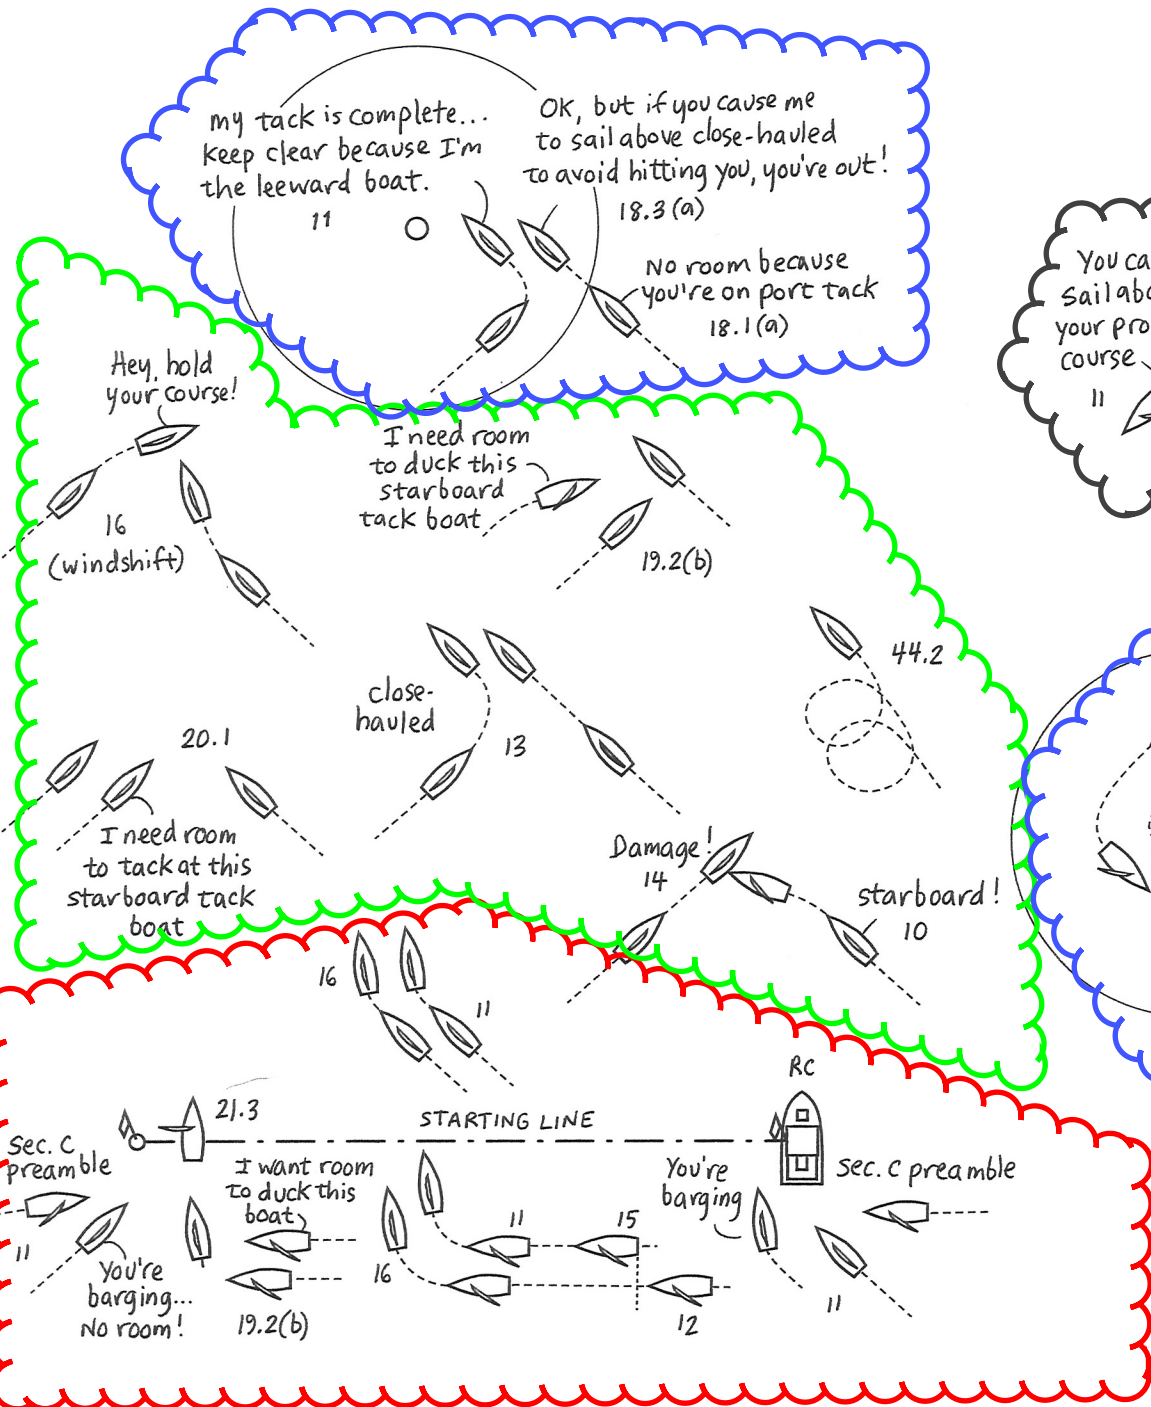 my tack is complete...
keep clear because I'm
the leeward boat.
11
OK, but if you cause me
to sail above close-hauled
to avoid hitting you, you're out!
18.3(a)
No room because
you're on port tack
18.1(a)
You ca
sail abo
your pro
course
11
Hey, hold
your course!
16
(windshift)
I need room
to duck this
starboard
tack boat
19.2(b)
44.2
close-
hauled
13
20.1
I need room
to tack at this
starboard tack
boat
Damage!
14
starboard!
10
16
11
RC
21.3
STARTING LINE
Sec. C
preamble
I want room
to duck this
boat
You're
barging
Sec. C preamble
11
You're
barging...
No room!
19.2(b)
16
11
15
12
11